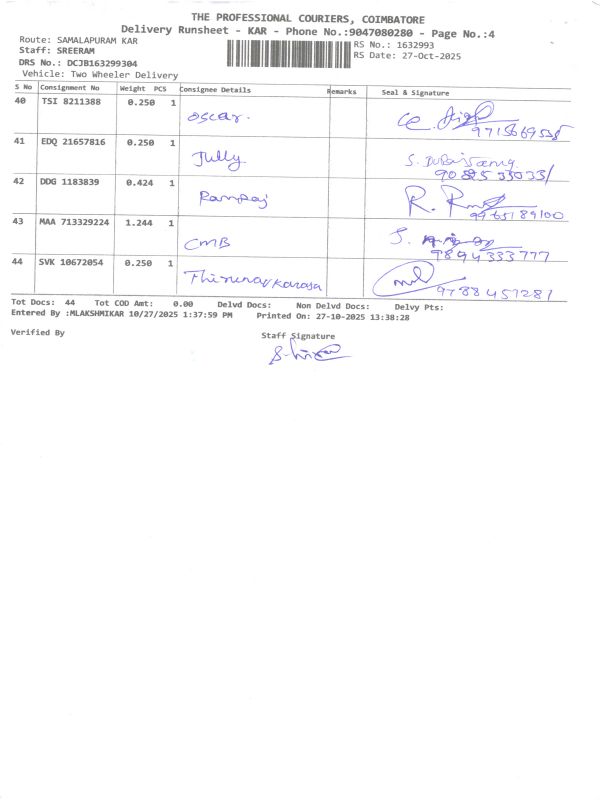 THE PROFESSIONAL COURIERS, COIMBATORE
Delivery Runsheet - KAR - Phone No.:9047080280 - Page No.:4
Route: SAMALAPURAM KAR RS No.: 1632993
Staff: SREERAM RS Date: 27-Oct-2025
DRS No.: DCJB163299304
Vehicle: Two Wheeler Delivery
S No Consignment No Weight PCS Consignee Details Remarks Seal & Signature
40 TSI 8211388 0.250 1
oscar.
9715669535
41 EDQ 21657816 0.250 1
Jully
42 DDG 1183839 0.424 1
Ramraj R.
9965189100
43 MAA 713329224 1.244 1
CMB
9894333777
44 SVK 10672054 0.250 1
9788457281
Tot Docs: 44 Tot COD Amt: 0.00 Delvd Docs: Non Delvd Docs: Delvy Pts:
Entered By :MLAKSHMIKAR 10/27/2025 1:37:59 PM Printed On: 27-10-2025 13:38:28
Verified By Staff Signature